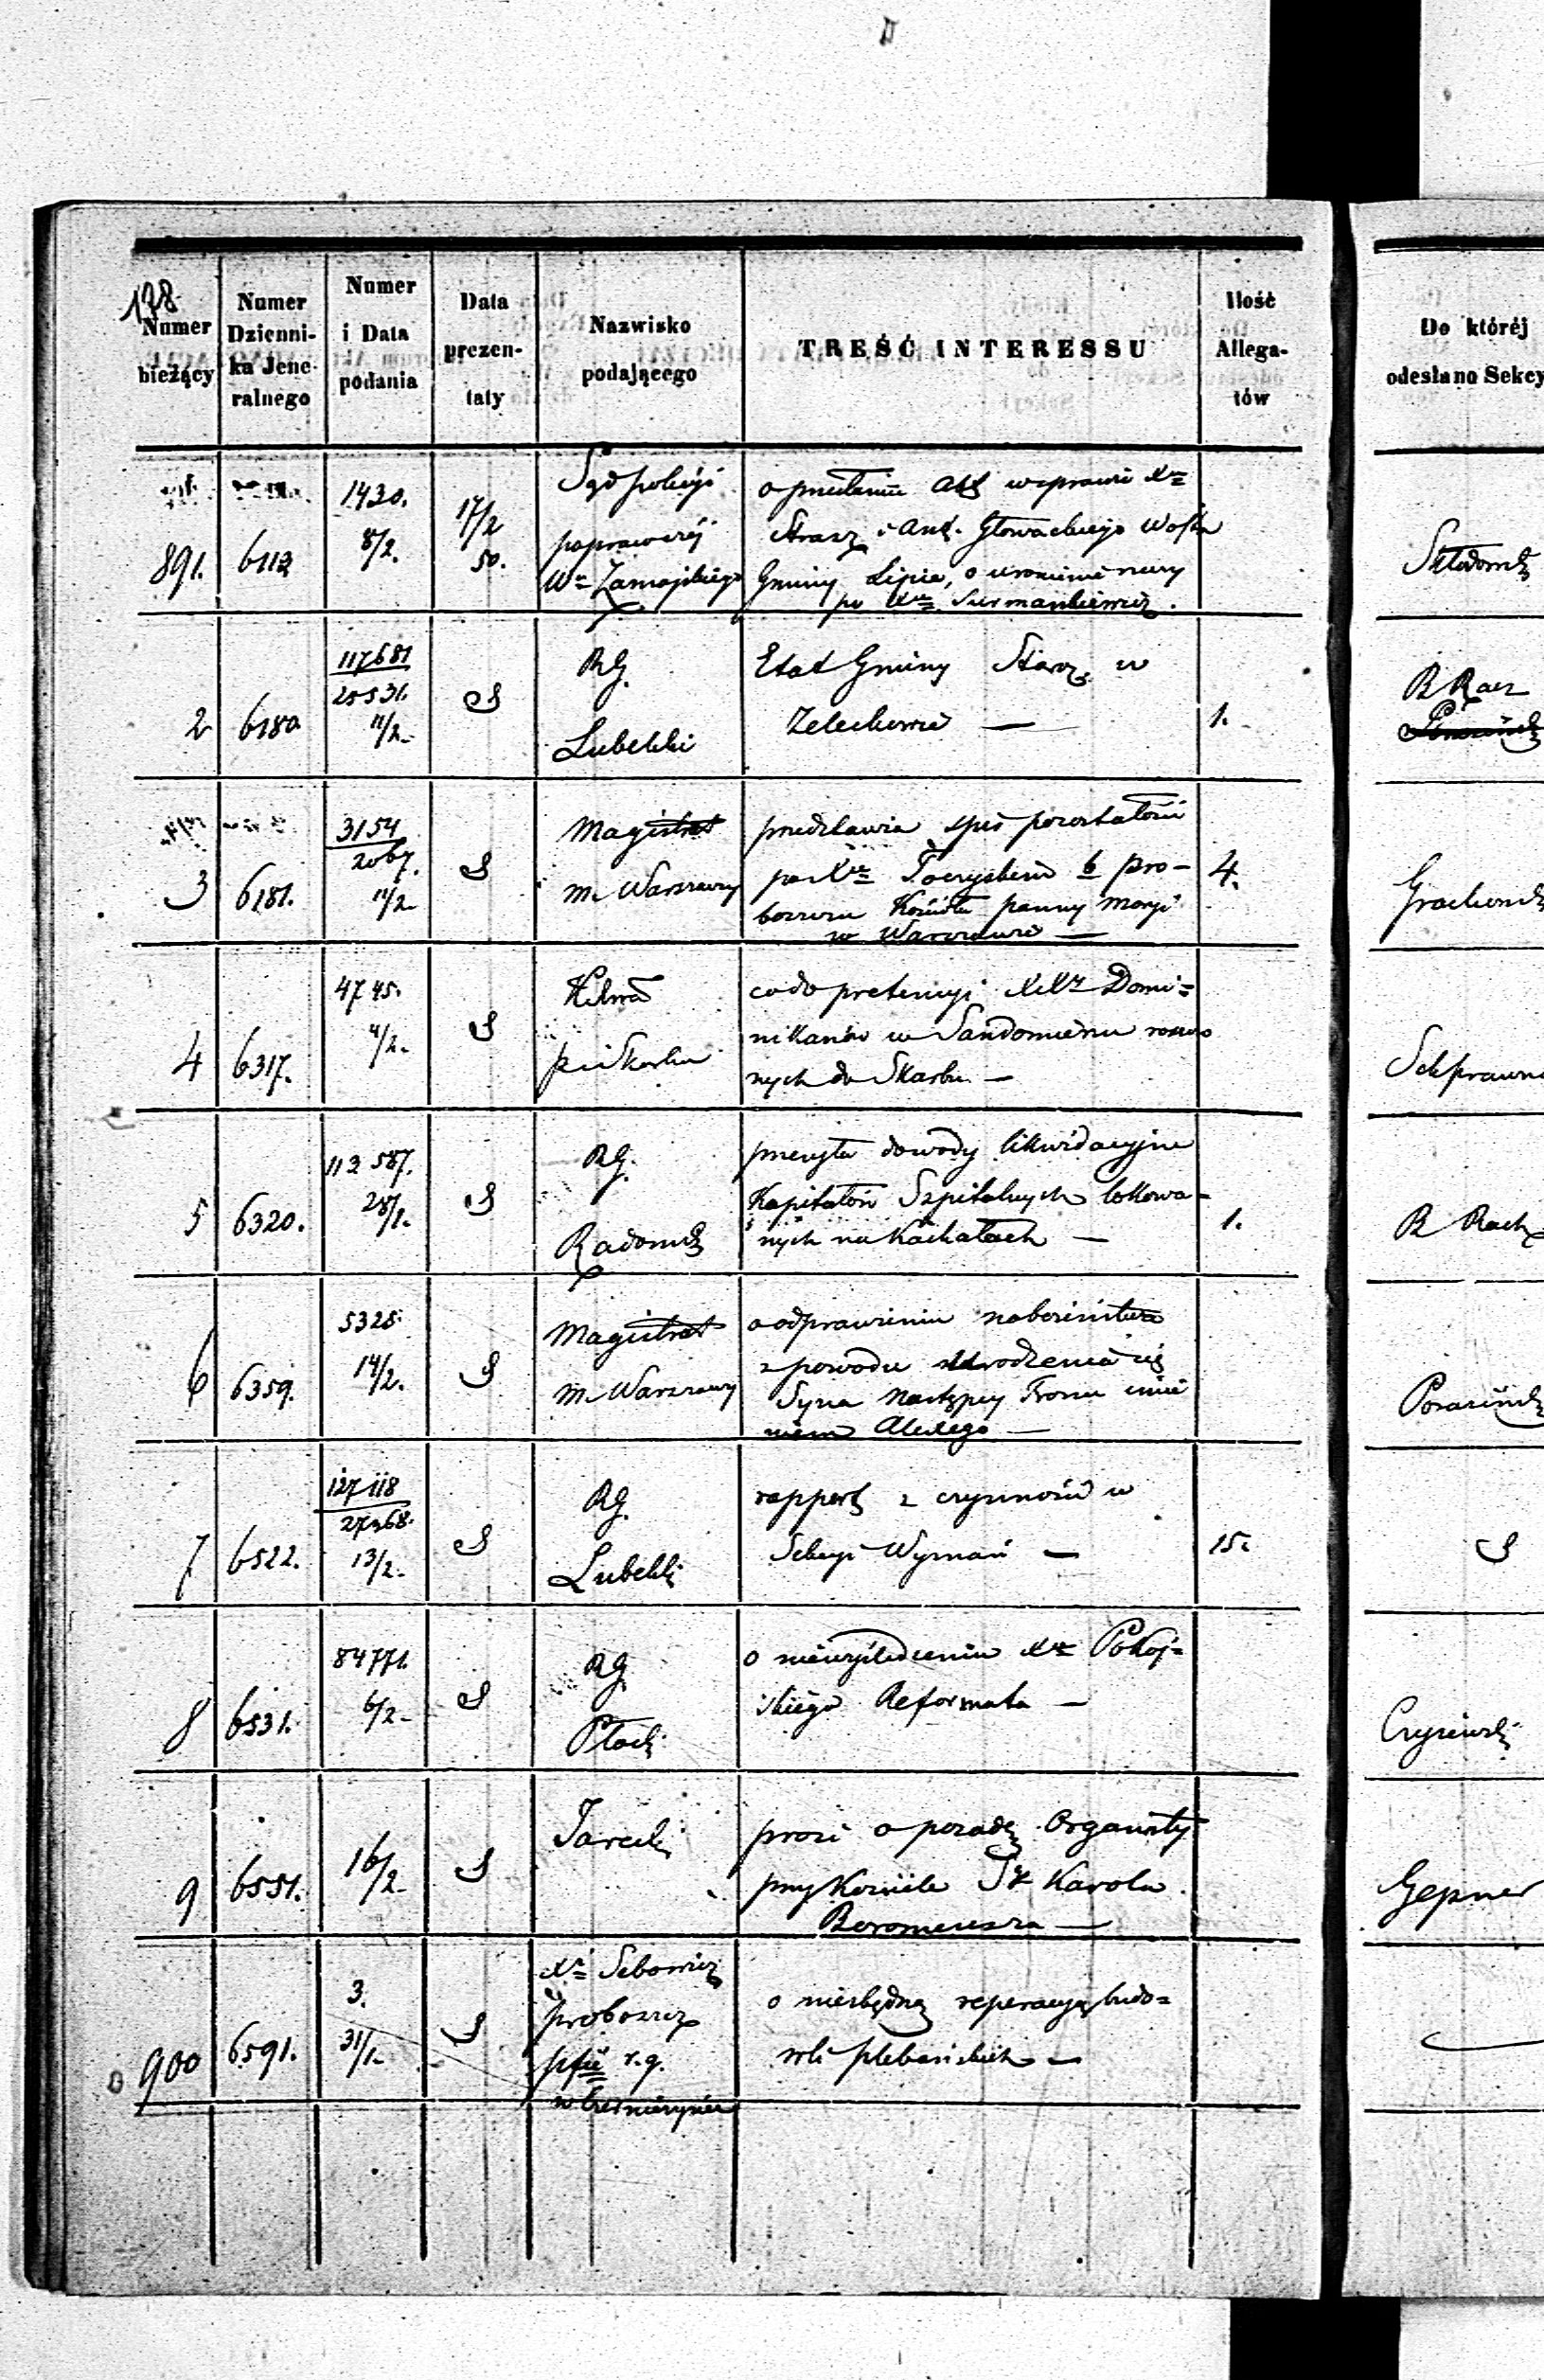 178
Numer bieżący
Numer Dzienni- ka Jene- ralnego
Numer i Data podania
Data prezen- taty
Nazwisko podającego
TREŚĆ INTERESSU
Ilość Allega- tów
Do któréj odesłano Sekcy
891. 6112 1430. 8/2. 17/2 50.
Sąd policyi
poprawczéj
Zamojskiego
o przesłanie akt w sprawie Xa
i Ant. Głowackiego Wójta
Gminy Lipie, o
po Surmankiewicz.
2 6180 117681 25531. 11/2. S
RG.
Lubelski
Etat Gminy Starz. w
Żelechowie — 1.
R Racz
3 6181. 3154 2067. 11/2 S
Magistrat
m. Warszawy
przedstawia spis pozostałości
po Xie b pro-
boszczu Kościoła panny Maryi
w Warszawie — 4.
4 6317. 4745. 4/2. S
co do pretensyi XXy Domi=
nikanów w Sandomierzu
nych do Skarbu —
5 6320. 112587. 28/1. S
RG.
Radomsk
przesyła dowody likwidacyjne
Kapitałów Szpitalnych lokowa-
nych na Kachałach — 1.
R Rach
6 6359. 5325. 14/2. S
Magistrat
m. Warszawy
o odprawieniu nabożeństwa
z powodu urodzenia się
Syna Następcy Tronu imie
niem Alexego —
7 6522. 127118 27968. 13/2. S
RG.
Lubelsk
rapport z czynności w
Sekcyi Wyznań — 15. S
8 6531. 84771. 6/2. S
RG.
Płocki
o niewyśledzeniu Xa Pokoj=
skiego Reformata —
9 6551. 16/2. S
Jarecki
prosi o posadę Organisty
przy Kościele Sgo Karola
Boromeusza —
Gepner
900 6591. 3. 31/1. S
Xa Sebowicz
proboszcz
r. g.
o niezbędną reperacyę budo=
wli plebańskich —